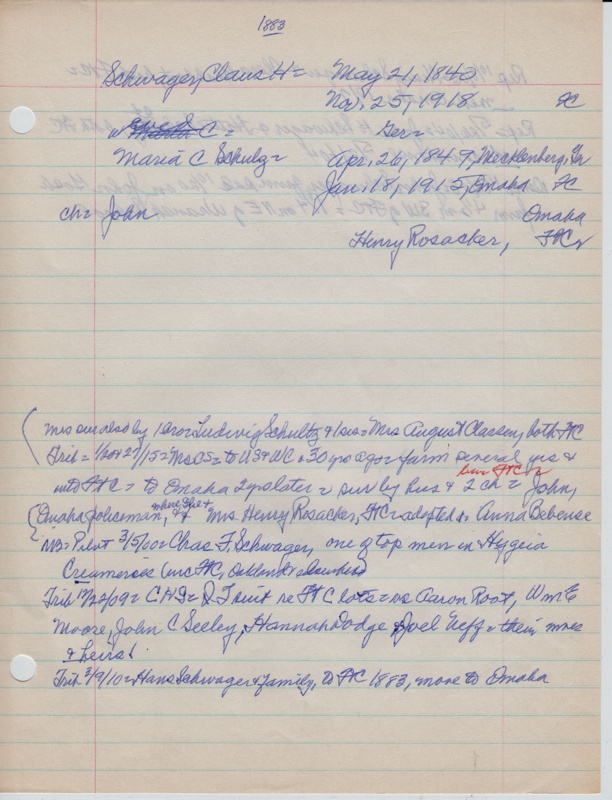 1883
Schwager, Claus H = May 21, 1840
Nov. 25, 1918, FC
w C = Ger =
Maria C Schulz = Apr. 26, 1849, Mecklenberg, Ger
Jan. 18, 1915, Omaha FC
ch = John Omaha
Henry Rosacker, FC
Mrs sur also by 1 bro = Ludwig Schultz & 1 sis = Mrs August Classen, both FC
Trib = 1/20 & 27/15 = Mrs CS = to US & WC = 30 yrs ago = farm several yrs &
bus FC
into FC = to Omaha 2 yrs later = sur by hus & 2 ch = John,
Omaha policeman, & Mrs Henry Rosacker, FC = adopted Anna Bebense
NB = Pilot 3/5/00 = Chas F. Schwager, one of top men in Hygeia
Creameries (inc FC, Oakland &
Trib 12/22/09 = CHS = Q T suit re FC lots = vs Aaron Root, Wm E
Moore, John C Seeley, Hannah Dodge & Joel Neff & their
& heirs!
Trib 3/9/10 = Hans Schwager & family, to FC 1883, move to Omaha